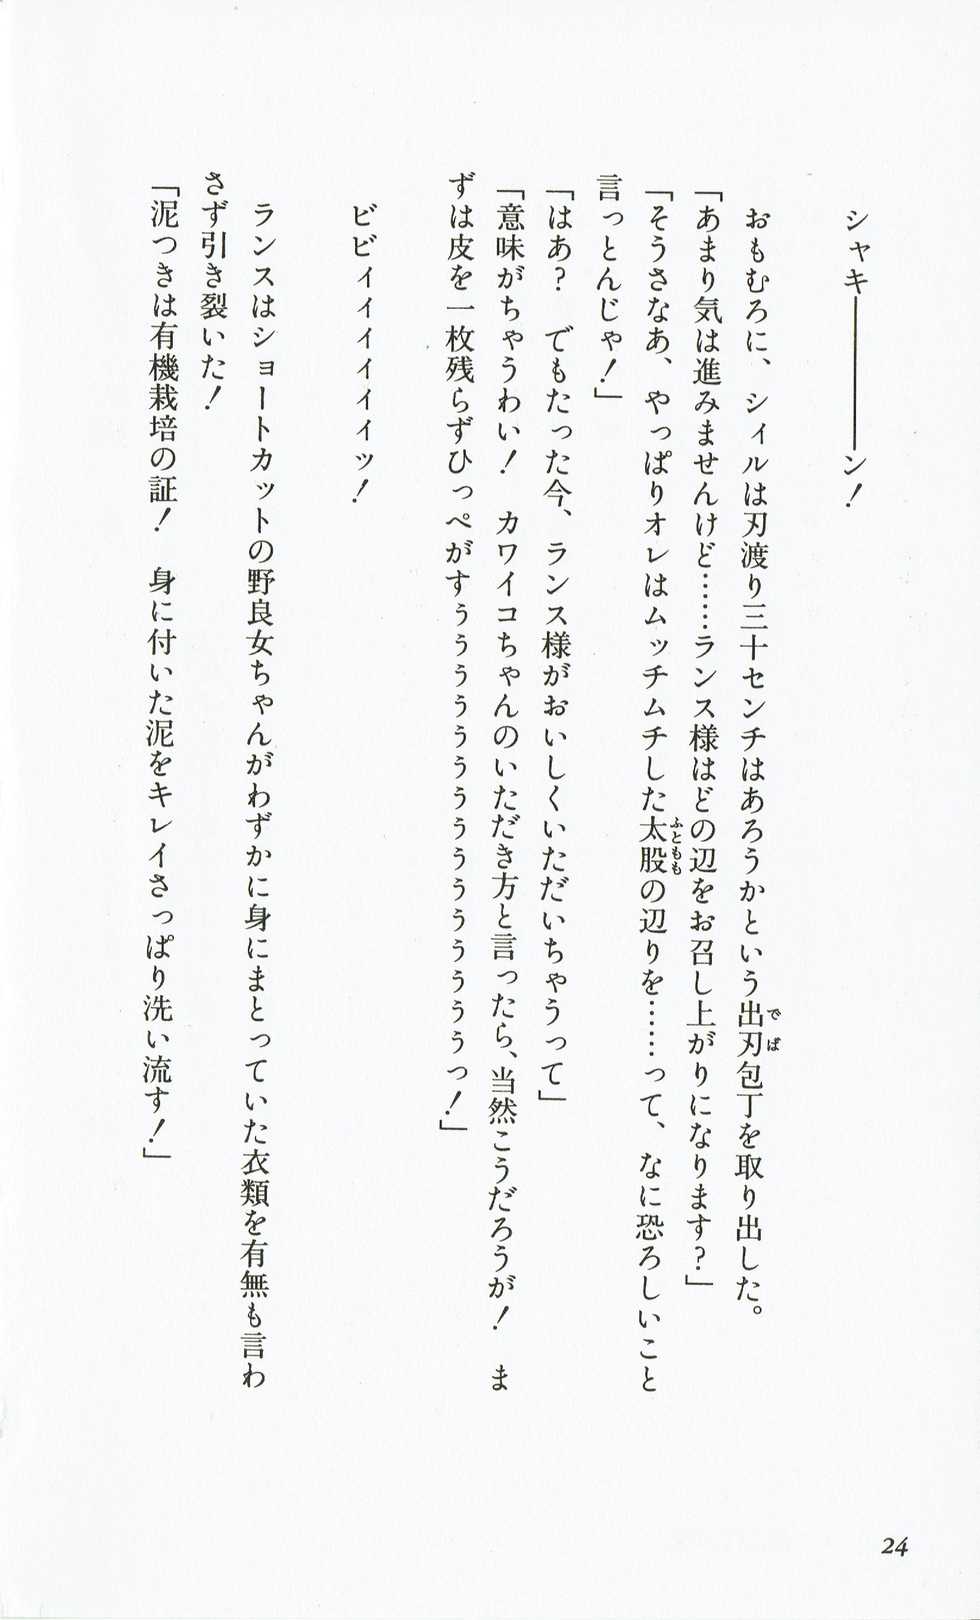 シャキ――――――ン！
おもむろに、シィルは刃渡り三十センチはあろうかという出刃包丁を取り出した。
「あまり気は進みませんけど……ランス様はどの辺をお召し上がりになります？」
「そうさなあ、やっぱりオレはムッチムチした太股の辺りを……って、なに恐ろしいこと
言っとんじゃ！」
「はあ？　でもたった今、ランス様がおいしくいただいちゃうって」
「意味がちゃうわい！　カワイコちゃんのいただき方と言ったら、当然こうだろうが！　ま
ずは皮を一枚残らずひっぺがすぅぅぅぅぅぅぅぅぅぅぅぅぅっ！」
ビビィィィィィィッ！
ランスはショートカットの野良女ちゃんがわずかに身にまとっていた衣類を有無も言わ
さず引き裂いた！
「泥つきは有機栽培の証！　身に付いた泥をキレイさっぱり洗い流す！」
24